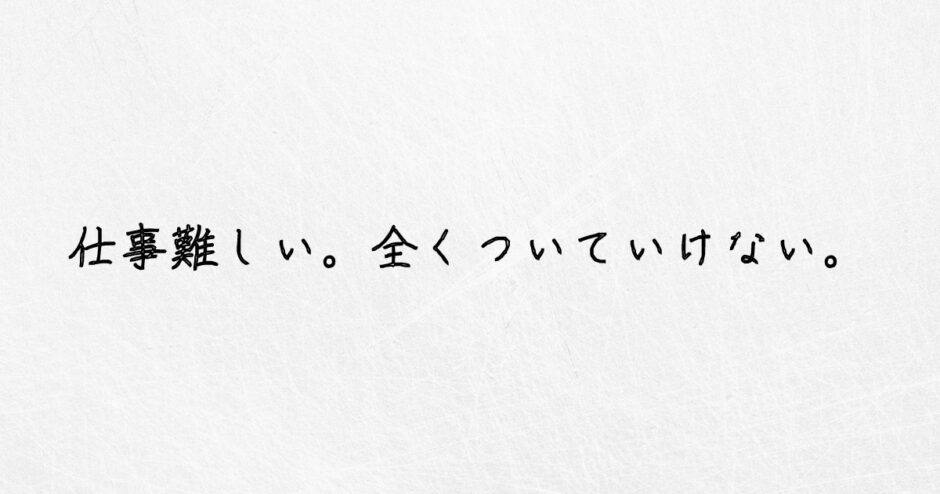 仕事難しい。全くついていけない。